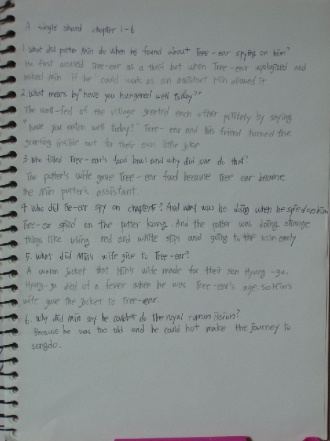 A single shard chapter 1-6
1. what did potter Min do when he found about Tree-ear spying on him?
He first accused Tree-ear as a thief but when Tree-ear apologized and
asked min if he could work as an assistant Min allowed it
2. What means by "have you hungered well today?"
The well-fed of the village greeted each other politely by saying
"have you eaten well today?" Tree-ear and his friend turned the
greeting inside out for their own little joke
3. Who filled Tree-ear's food bowl and why did she do that?
The potter's wife gave Tree-ear food because Tree ear became
the Min potter's assistant.
4. Who did Tree-ear spy on chapter 5? And what was he doing when he
Tree-ear spied on the potter kang. And the potter was doing strange
things like using red and white slips and going to the kiln early
5. What did Min's wife give to Tree-ear?
A warm jacket that Min's wife made for their son Hyung-gu.
Hyung-gu died of a fever when he was Tree-ear's age so Min's
wife give the jacket to Tree-ear.
6. Why did min say he couldn't do the royal commission?
Because he was too old and he could not make the journey to
songdo.